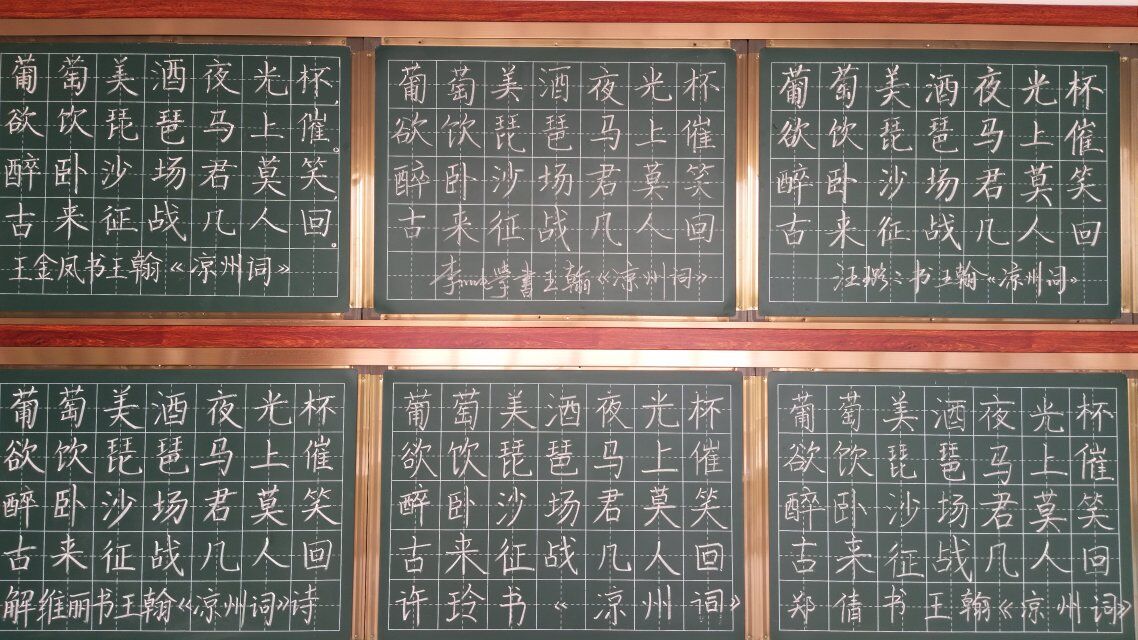 葡萄美酒夜光杯,
欲饮琵琶马上催。
醉卧沙场君莫笑,
古来征战几人回。
王金凤书王翰《凉州词》
葡萄美酒夜光杯
欲饮琵琶马上催
醉卧沙场君莫笑
古来征战几人回
李 学書王翰《凉州词》
葡萄美酒夜光杯
欲饮琵琶马上催
醉卧沙场君莫笑
古来征战几人回
汪 书王翰《凉州词》
葡萄美酒夜光杯
欲饮琵琶马上催
醉卧沙场君莫笑
古来征战几人回
解维丽书王翰《凉州词》诗
葡萄美酒夜光杯
欲饮琵琶马上催
醉卧沙场君莫笑
古来征战几人回
许玲书《凉州词》
葡萄美酒夜光杯
欲饮琵琶马上催
醉卧沙场君莫笑
古来征战几人回
郑倩书王翰《凉州词》